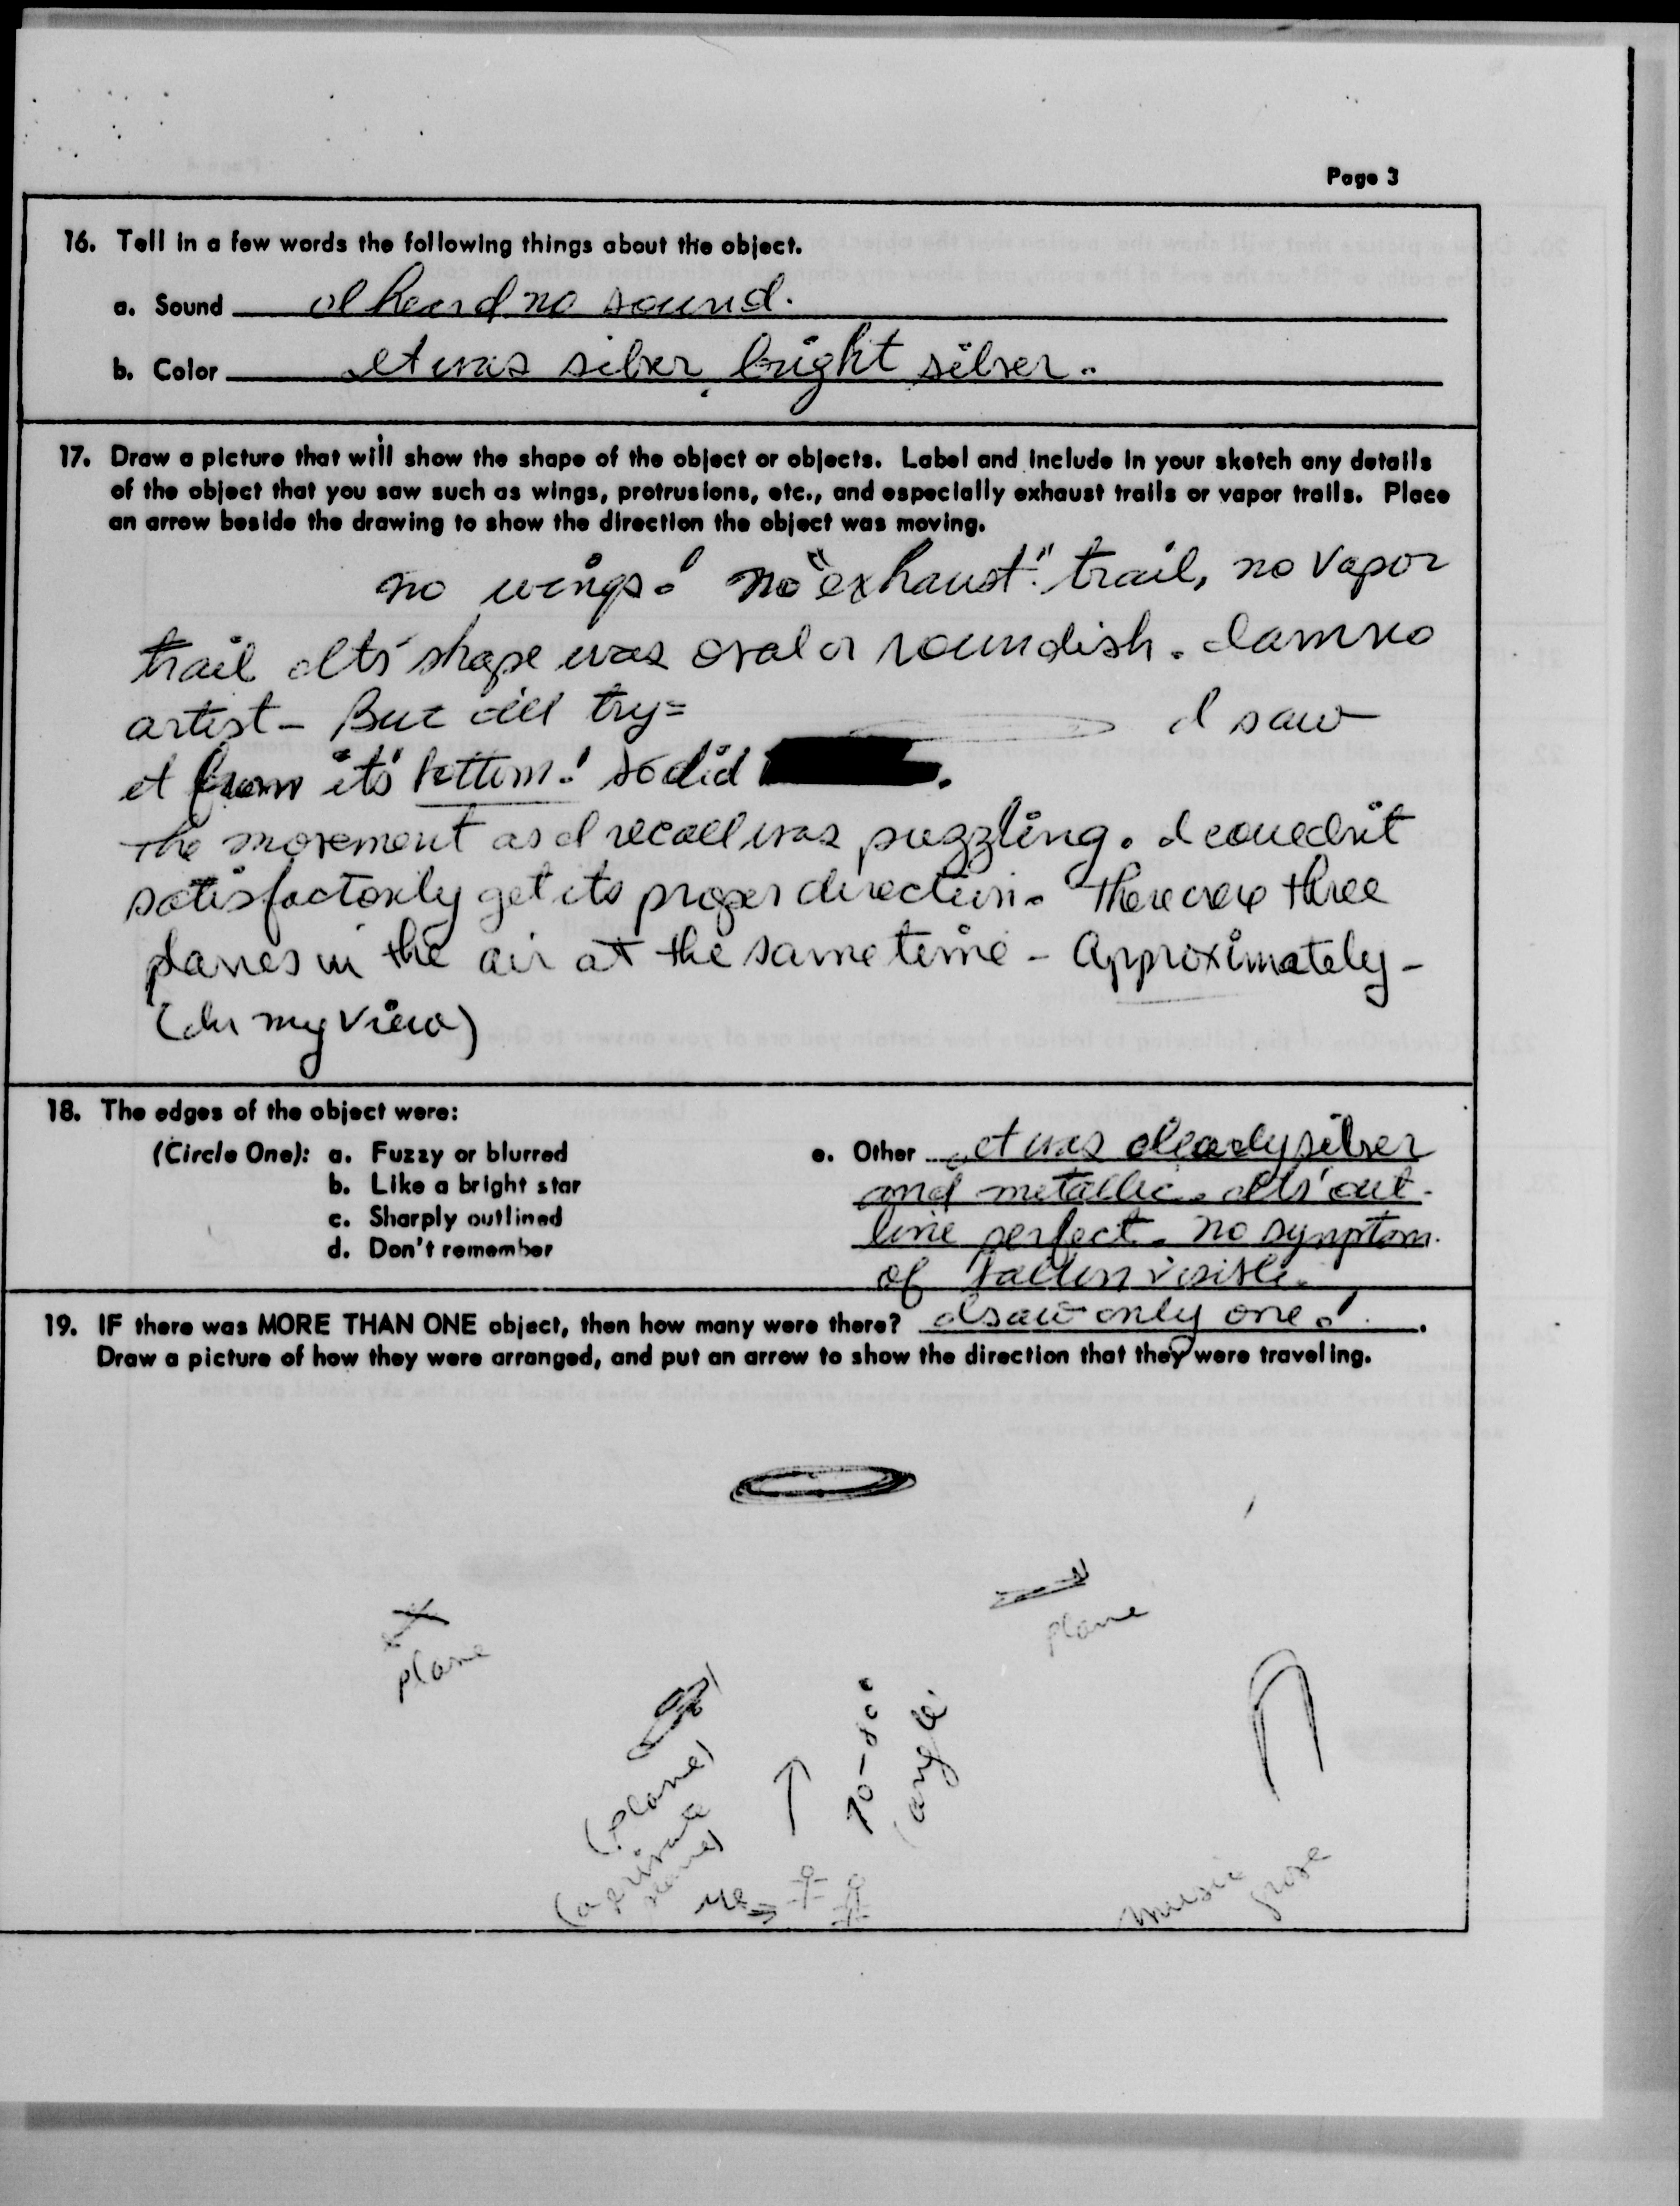 Page 3
16. Tell in a few words the following things about the object.
a. Sound I heard no sound.
b. Color It was silver, bright silver.
17. Draw a picture that will show the shape of the object or objects. Label and include in your sketch any details
of the object that you saw such as wings, protrusions, etc., and especially exhaust trails or vapor trails. Place
an arrow beside the drawing to show the direction the object was moving.
no wings! no "exhaust" trail, no vapor
trail Its' shape was oval or roundish. I am no
artist - But I'll try = I saw
it from its' bottom! so did
The movement as I recall was puzzling. I couldn't
satisfactorily get its proper direction. There were three
planes in the air at the same time - Approximately -
(In my view)
18. The edges of the object were:
(Circle One): a. Fuzzy or blurred
b. Like a bright star
c. Sharply outlined
d. Don't remember
e. Other It was clearly silver
and metallic. Its' out-
line perfect. No symptom
of visible.
19. IF there was MORE THAN ONE object, then how many were there? I saw only one!.
Draw a picture of how they were arranged, and put an arrow to show the direction that they were traveling.
plane
plane
(plane)
(a private
plane)
70-80°
(angle
us
music